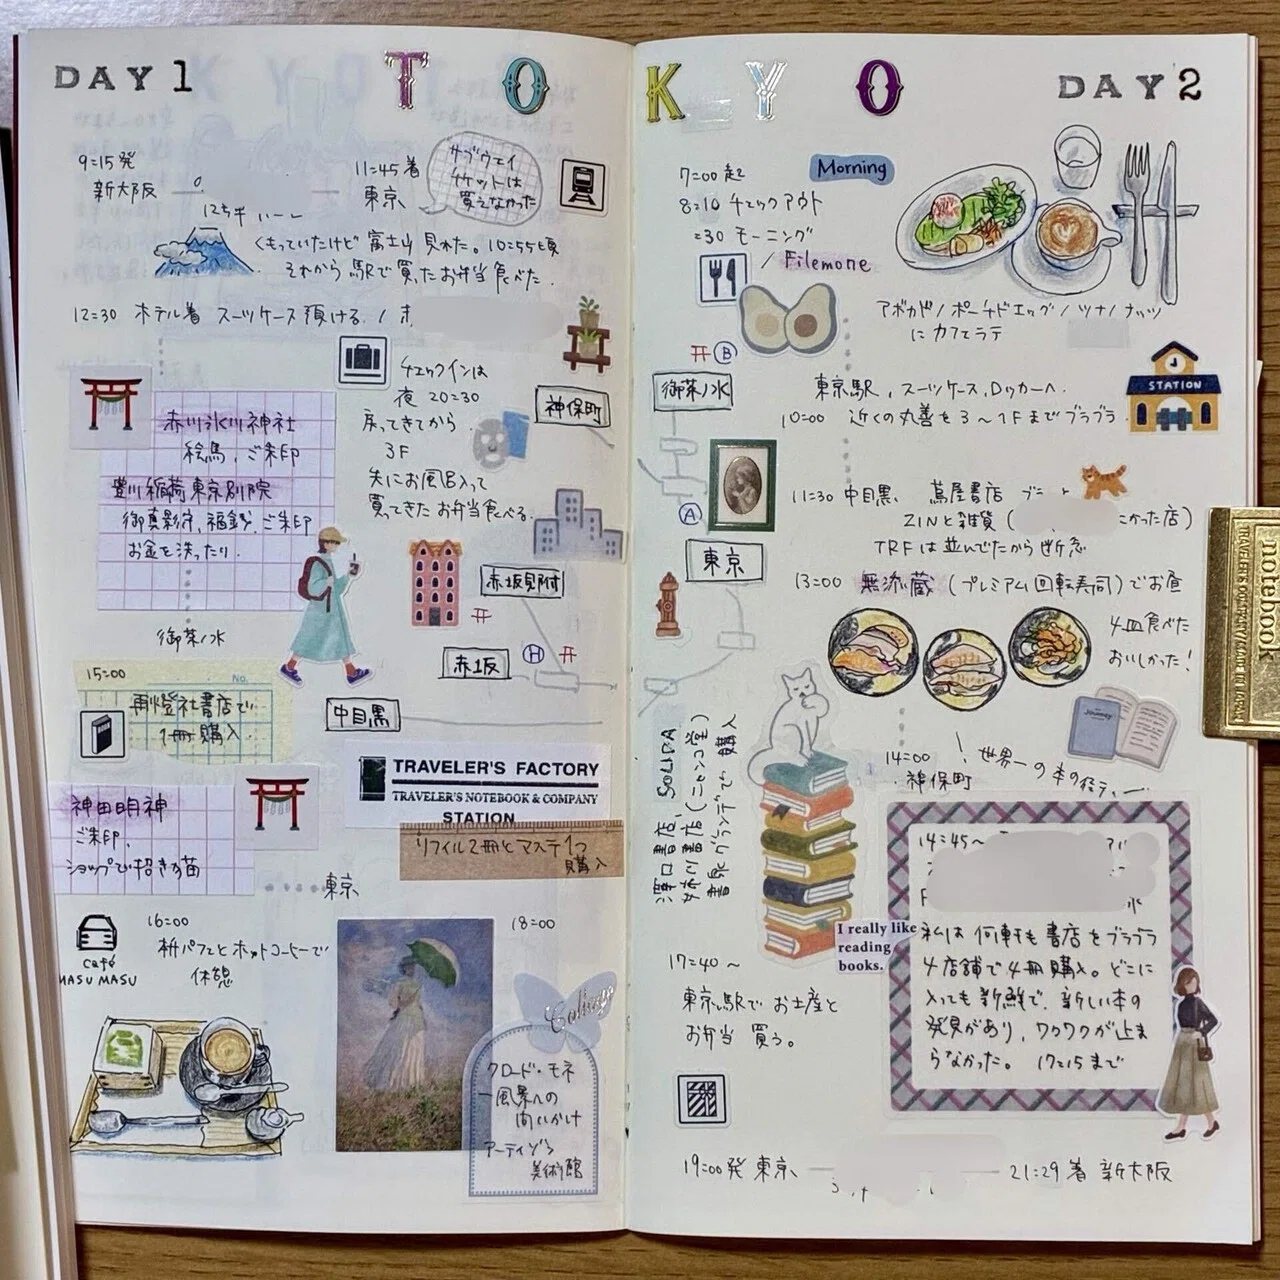 DAY 1
TOKYO
DAY 2
9:15 発
新大阪
11:45 着
東京
サブウェイ
チケットは
買えなかった
くもっていたけど 富士山 見れた。10:55頃
それから 駅で買ったお弁当食べた.
12:30 ホテル着 スーツケース 預ける /
チェックインは
夜 20:30
戻ってきてから
3F
先にお風呂入って
買ってきた お弁当食べる.
神保町
赤坂氷川神社
絵馬, ご朱印
豊川稲荷東京別院
御真影守, 福銭, ご朱印
お金を洗ったり.
赤坂見附
赤坂
H
中目黒
御茶ノ水
15:00
No.
再燈社書店で
1冊 購入
神田明神
ご朱印,
ショップで招き猫
東京
TRAVELER'S FACTORY
TRAVELER'S NOTEBOOK & COMPANY
STATION
リフィル2冊とマステ1つ
購入
16:00
café
MASU MASU
枡パフェとホットコーヒーで
休憩
18:00
Collage
クロード・モネ
風景への
問いかけ
アーティゾン
美術館
7:00 起
8:10 チェックアウト
:30 モーニング
/ Filemone
Morning
アボカド / ポーチドエッグ / ツナ / ナッツ
に カフェラテ
B
御茶ノ水
東京駅, スーツケース, ロッカーへ.
10:00 近くの丸善を 3~1Fまで ブラブラ
STATION
A
東京
11:30 中目黒 蔦屋書店
ZINと雑貨 (
かった店)
TRFは並んでたから断念
13:00 無添蔵 (プレミアム回転寿司) でお昼
4皿食べた
おいしかった!
Journey
14:00
神保町
世界一の本の街
澤口書店, SOLIDA
姉川書店 (ニャンコ堂)
書泉グランデで 購入
I really like
reading
books.
14:45~
私は 何軒も 書店を ブラブラ
4店舗で 4冊購入。どこに
入っても 新鮮で, 新しい本の
発見があり, ワクワクが止ま
らなかった。 17:15まで
17:40 ~
東京駅で お土産と
お弁当 買う。
19:00発 東京
21:29 着 新大阪
notebook
TRAVELER'S COMPANY MADE IN JAPAN